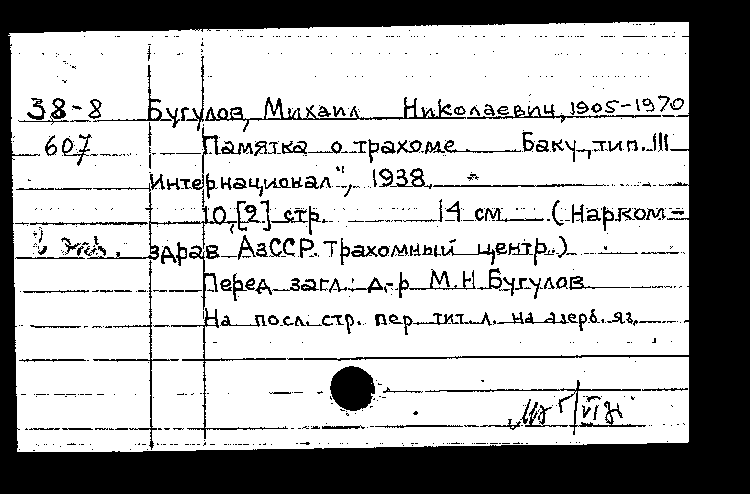 38-8 Бугулов, Михаил Николаевич, 1905-1970
607 Памятка о трахоме. Баку, тип. III
Интернационал", 1938.
10, [2] стр. 14 см. (Нарком-
здрав АзССР. Трахомный центр.)
Перед загл.: д-р М.Н.Бугулов
На посл. стр. пер. тит. л. на азерб. яз.